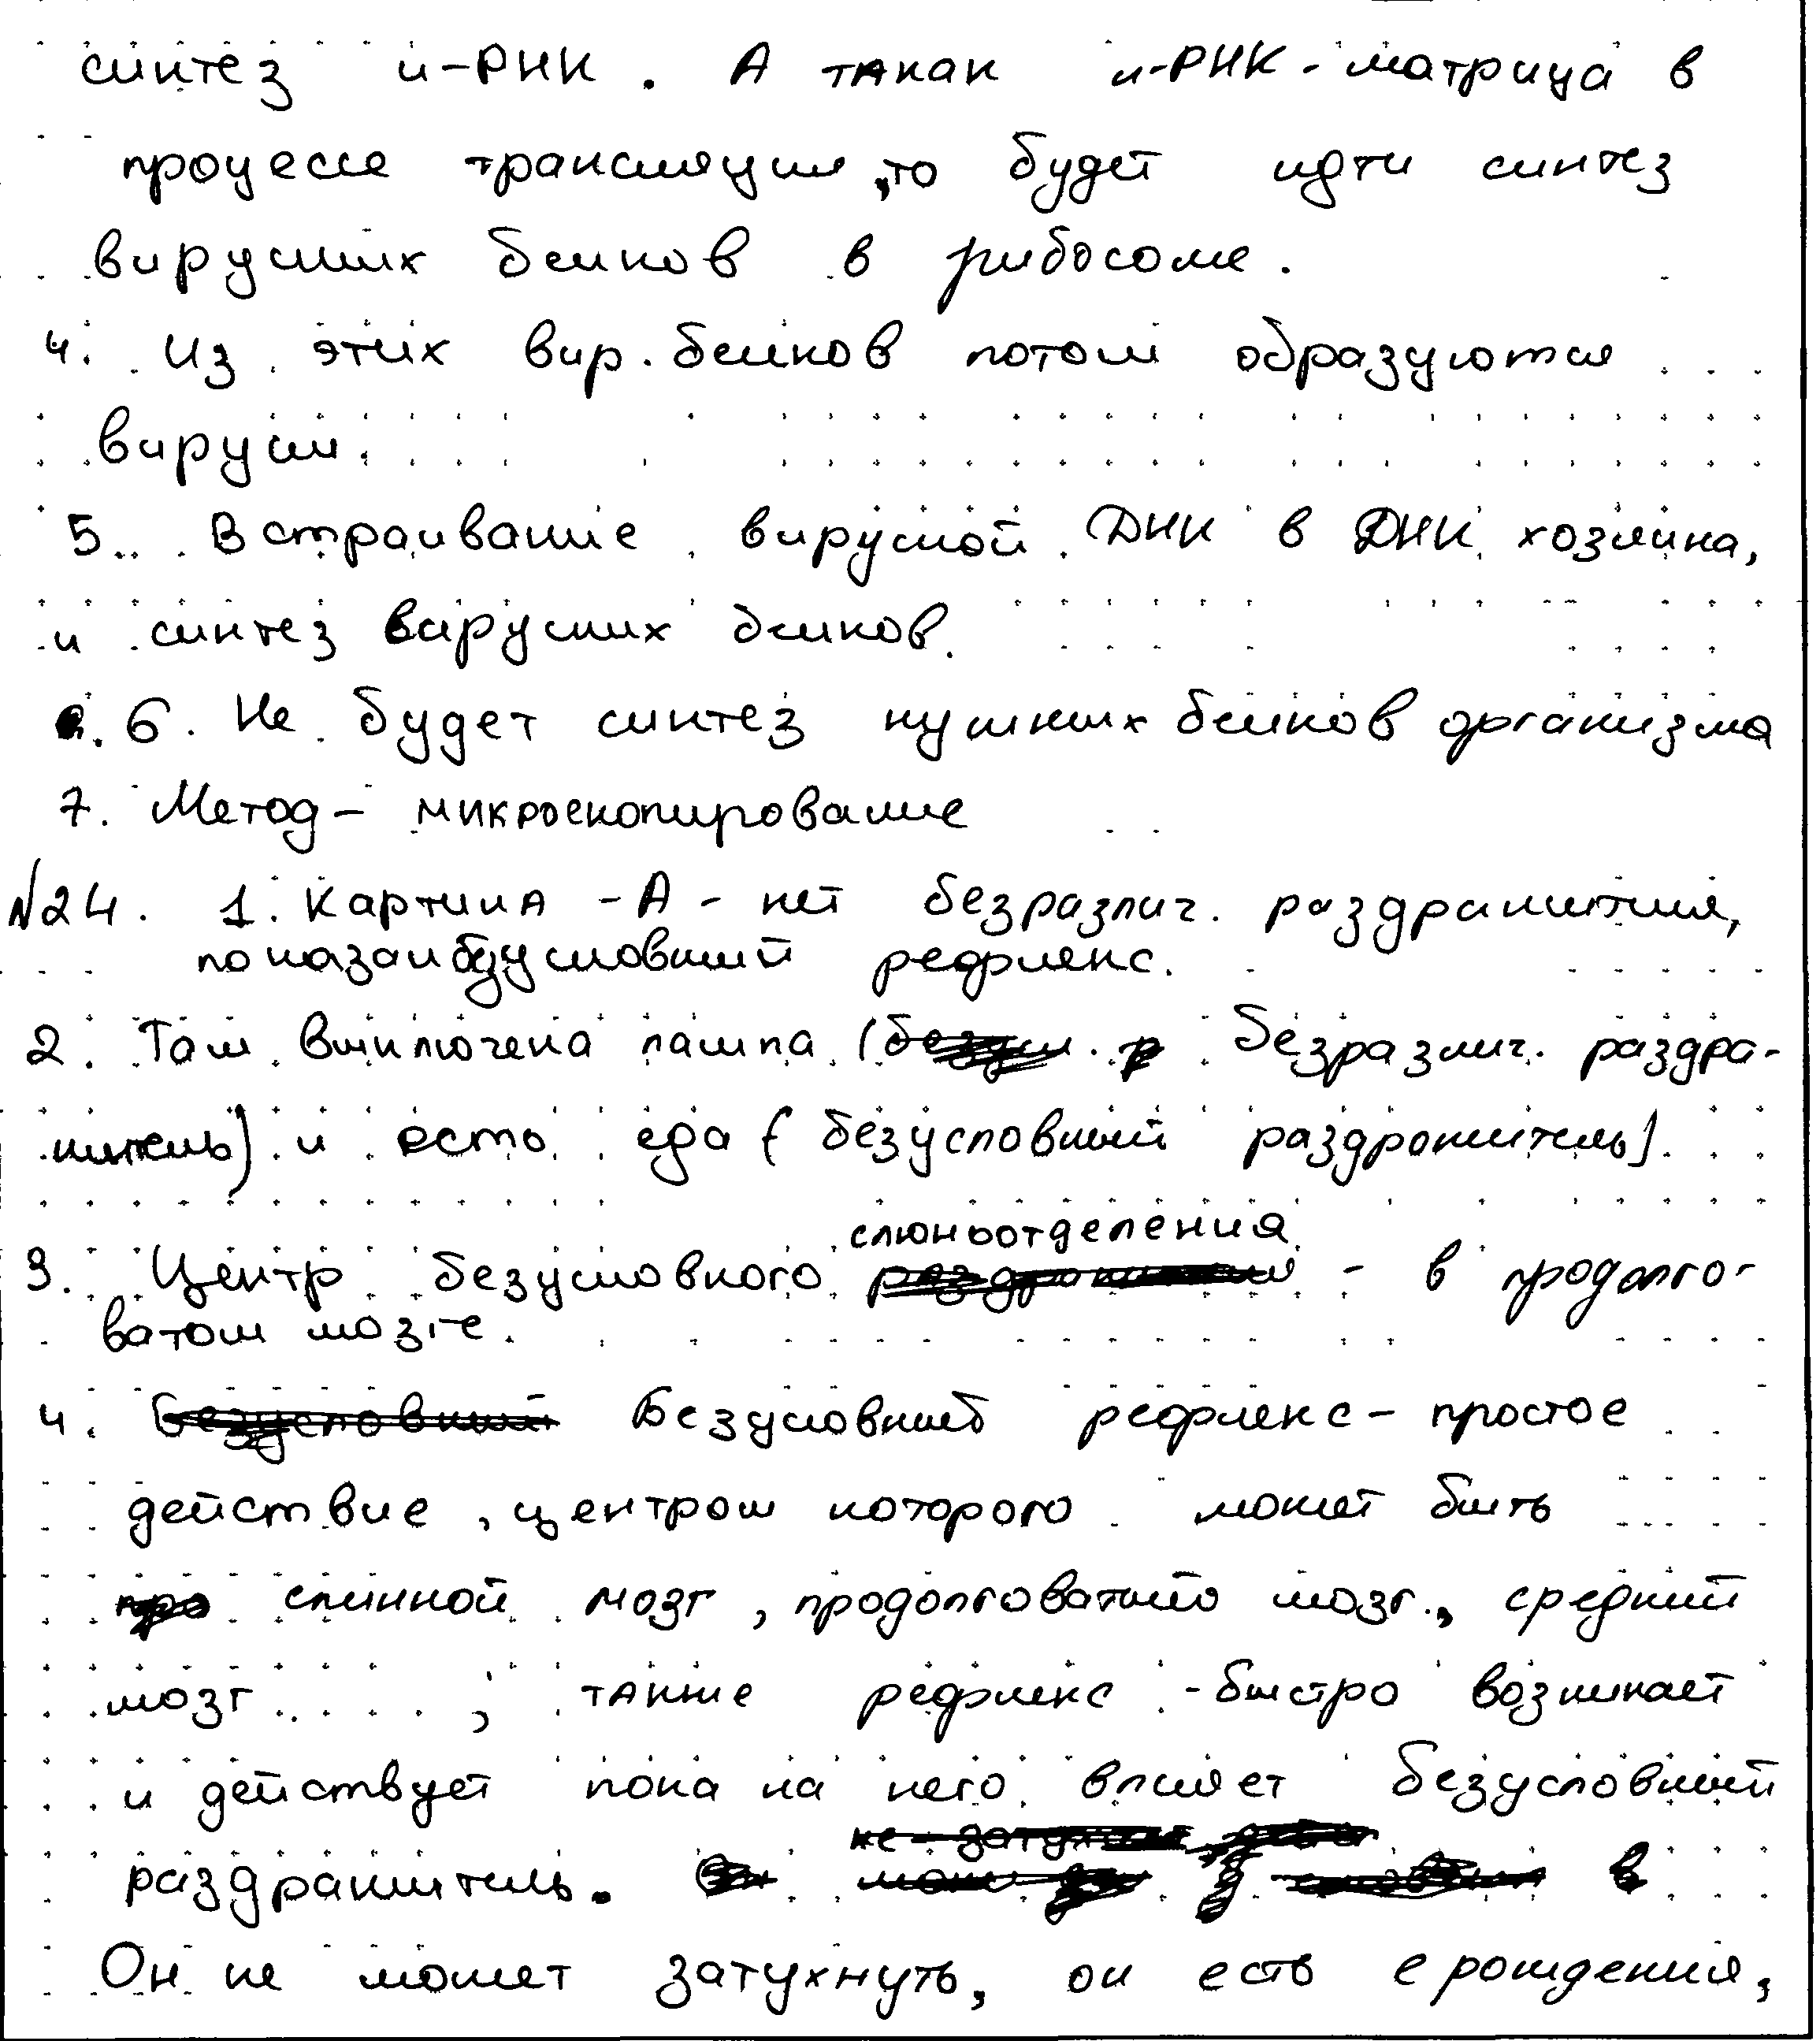 синтез и-РНК. А такак и-РНК - матрица в
процессе трансляции, то будет идти синтез
вирусных белков в рибосоме.
4. Из этих вир. белков потом образуются
вирусы.
5. Встраивание вирусной ДНК в ДНК хозяина,
и синтез вирусных белков.
6. Не будет синтез нужных белков организма
7. Метод - микроскопирование
№24. 1. Картина - А - нет безразлич. раздражителя,
показан безусловный рефлекс.
2. Там включена лампа (безразлич. раздра-
житель) и есть еда (безусловный раздражитель).
слюноотделения
3. Центр безусловного - в продолго-
ватом мозге.
4. Безусловный Безусловный рефлекс - простое
действие, центром которого может быть
спинной мозг, продолговатый мозг, средний
мозг ; также рефлекс - быстро возникает
и действует пока на него влияет безусловный
раздражитель.
Он не может затухнуть, он есть с рождения,